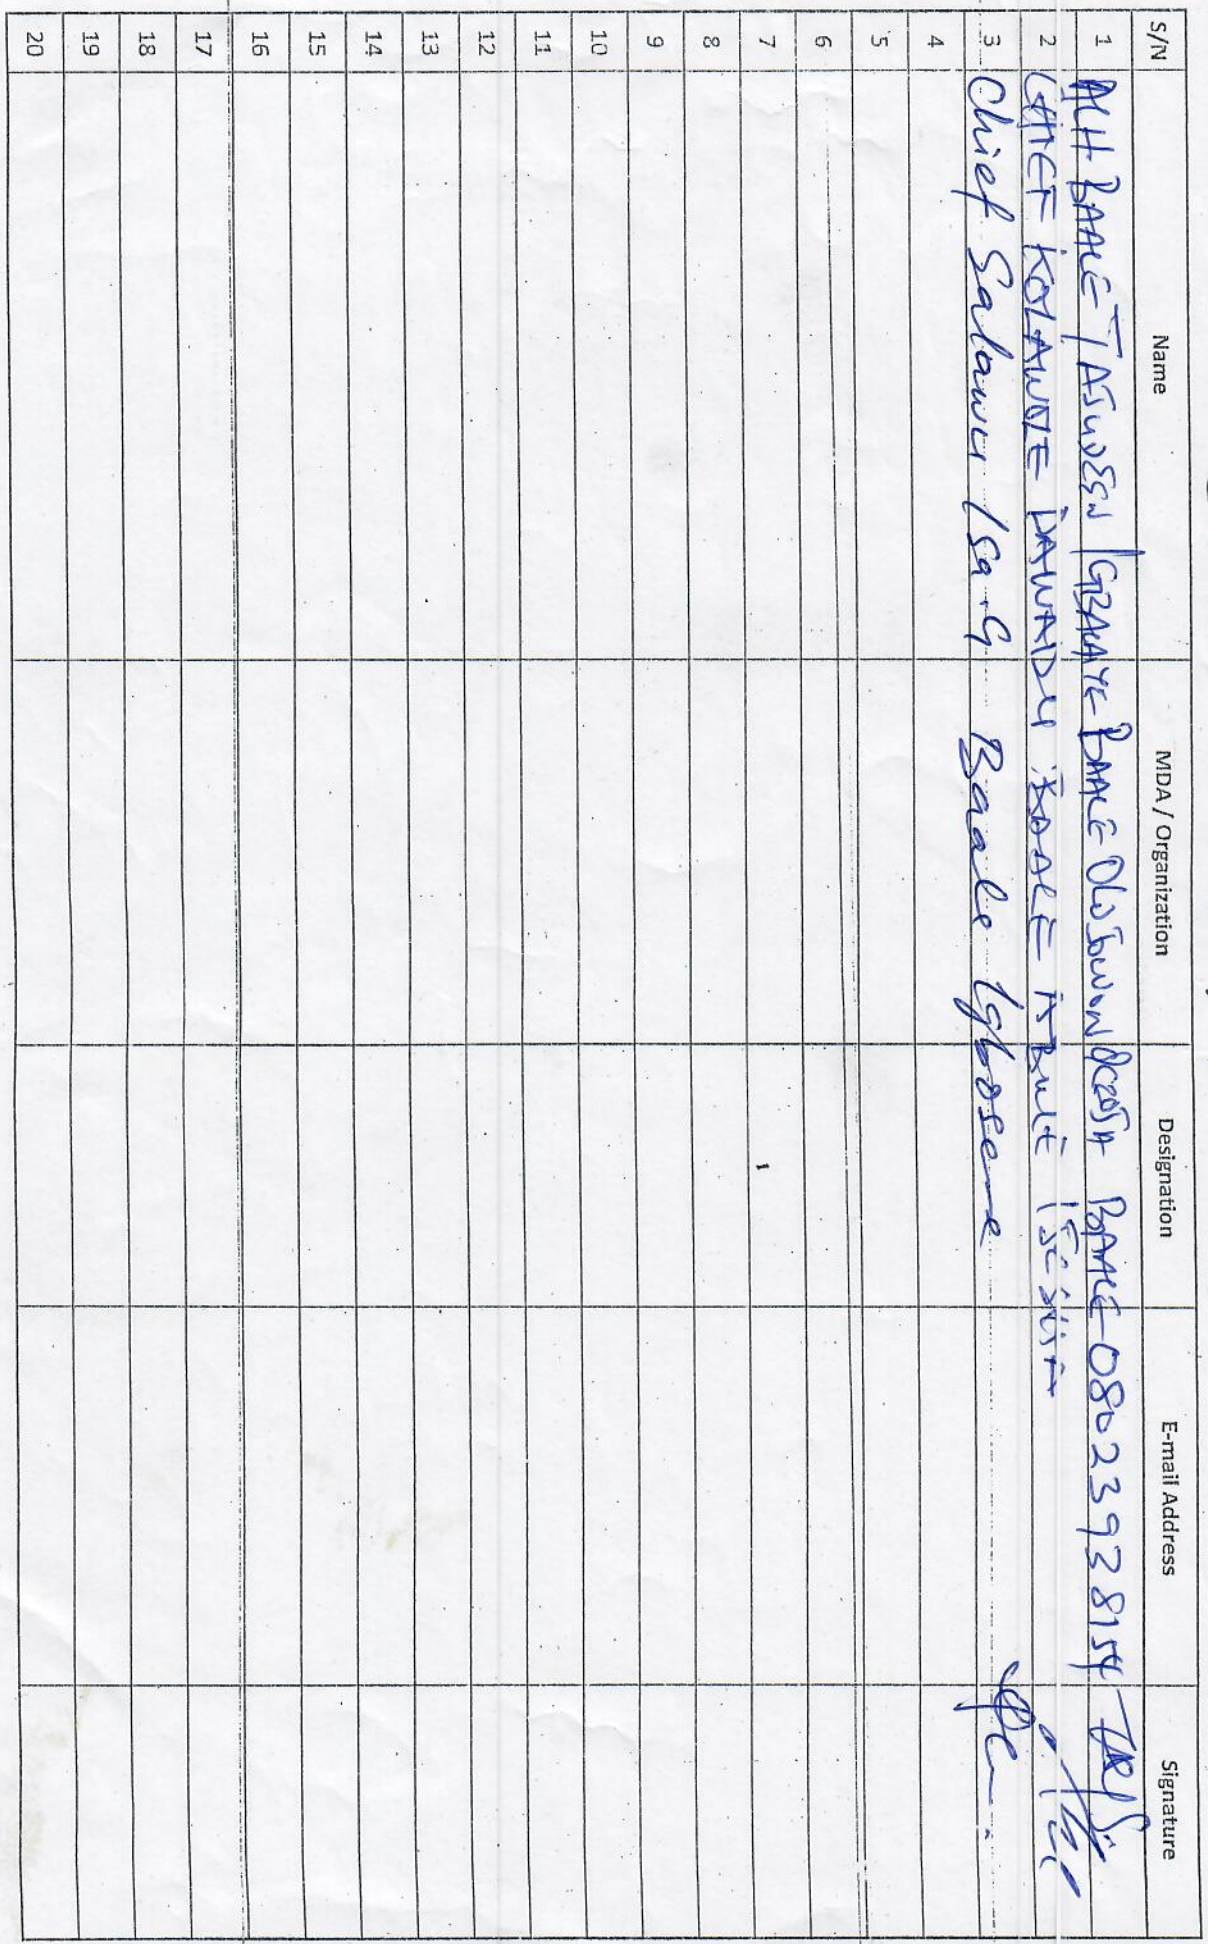 S/N Name MDA / Organization Designation E-mail Address Signature
1 ALH. BAALE TAJUDEEN IGBALAYE BAALE OLUSUWON BAALE 08023938154
2 CHIEF KOLAWOLE DAWNDU BAALE ABULE
3 Chief Salawu Isa .G Baale Igbosere
4
5
6
7
8
9
10
11
12
13
14
15
16
17
18
19
20